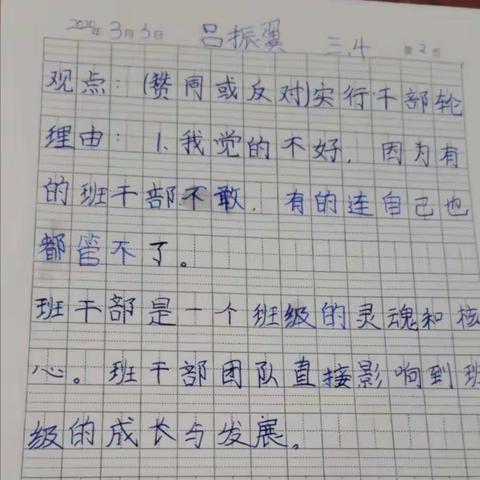 2024年 3月5日 吕振翼 三.4 第2页
观点:(赞同或反对)实行干部轮
理由:1.我觉的不好,因为有
的班干部不敢,有的连自己也
都管不了。
班干部是一个班级的灵魂和核
心。班干部团队直接影响到班
级的成长与发展。